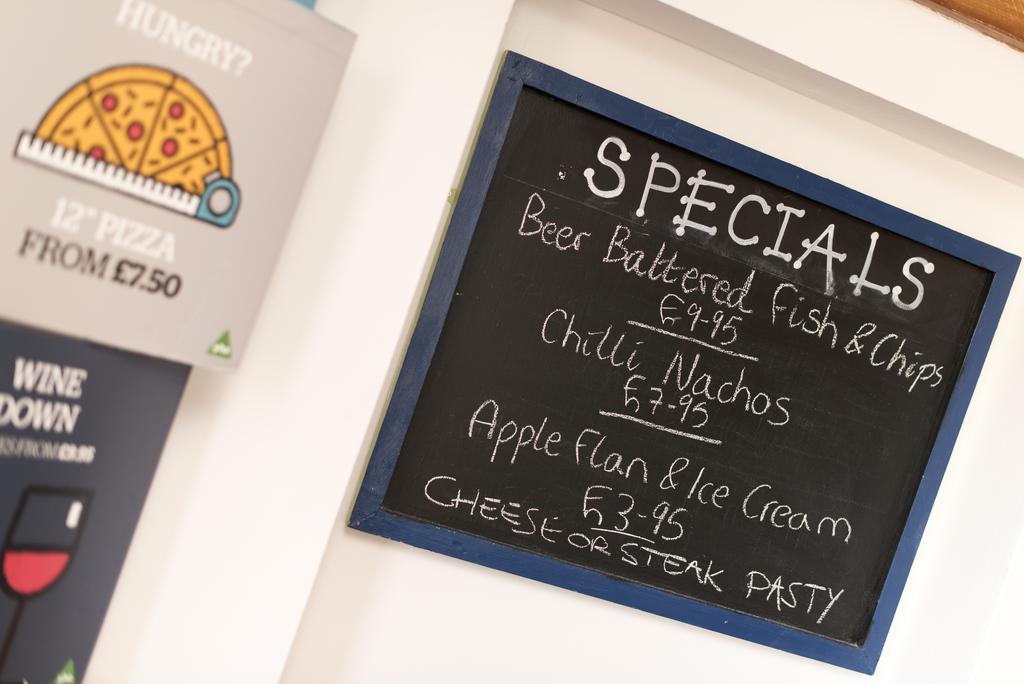 HUNGRY?
12" PIZZA
FROM £7.50
WINE
DOWN
SPECIALS
Beer Battered Fish & Chips
£9-95
Chilli Nachos
£7-95
Apple Flan & Ice Cream
£3-95
CHEESE OR STEAK PASTY